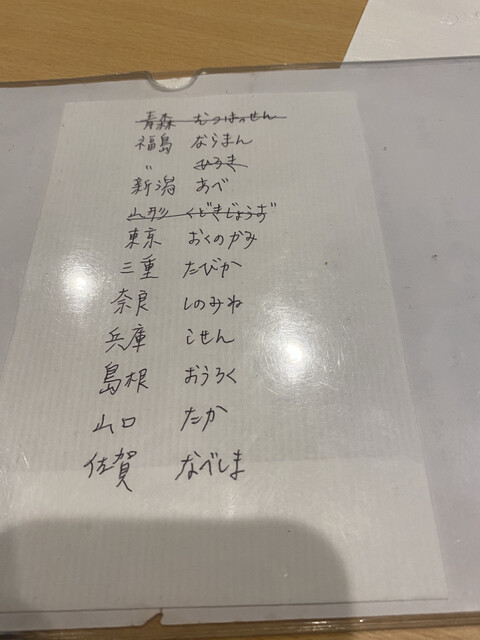 青森 むつはっせん
福島 ならまん
〃 ひろき
新潟 あべ
山形 くどきじょうず
東京 おくのかみ
三重 たびか
奈良 しのみね
兵庫 こせん
島根 おうろく
山口 たか
佐賀 なべしま